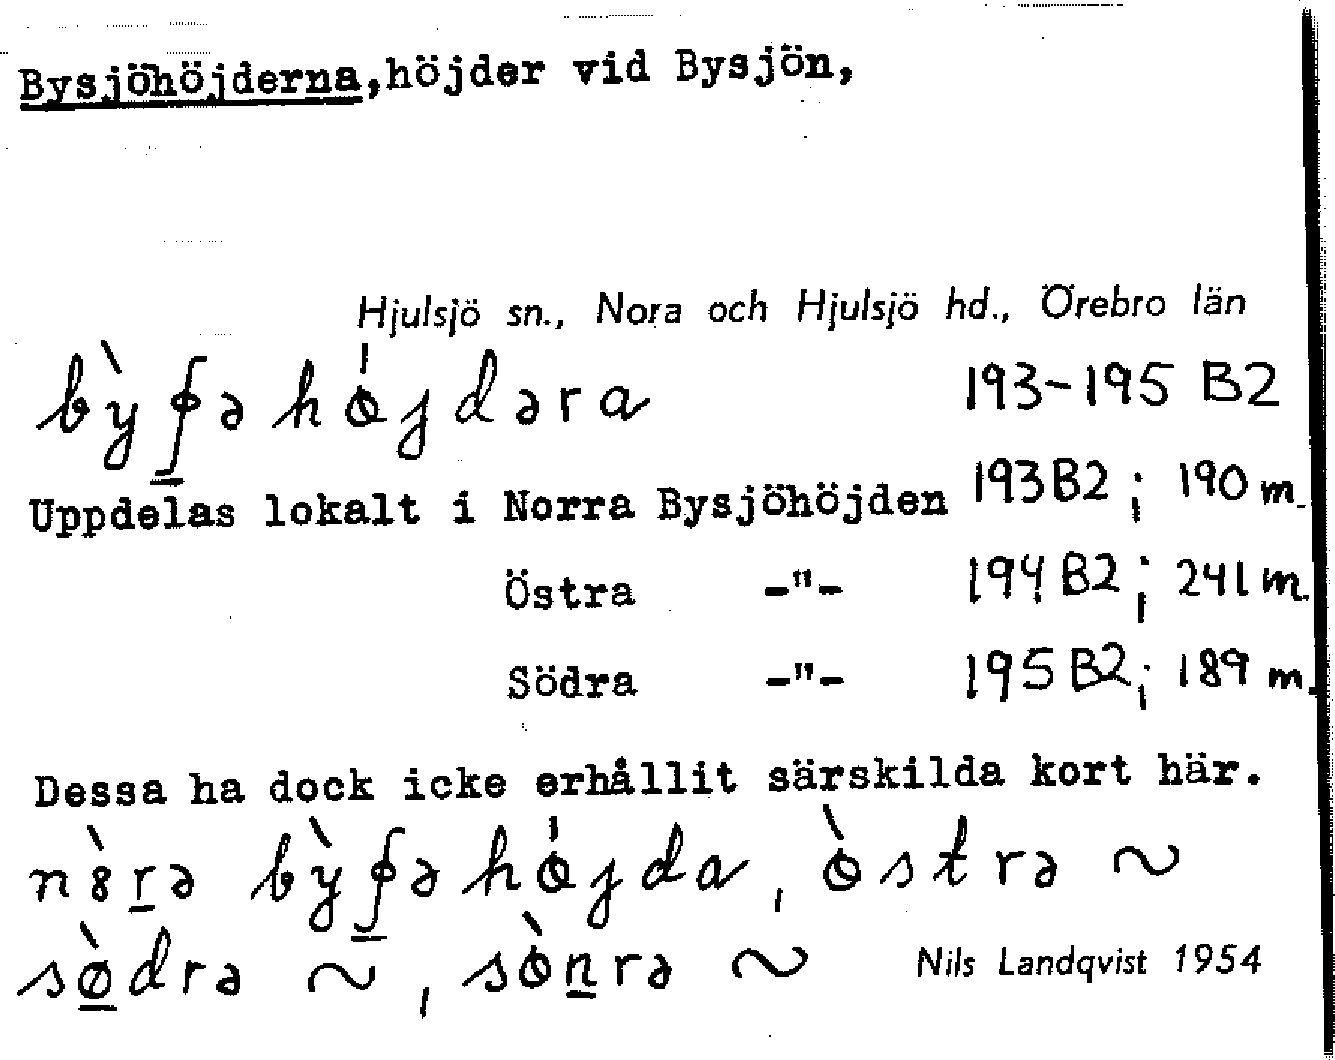 Bysjöhöjderna,höjder vid Bysjön,
Hjulsjö sn., Nora och Hjulsjö hd., Örebro län
193-195 B2
Uppdelas lokalt i Norra Bysjöhöjden 193B2; 190 m.
Östra -"- 194 B2; 241 m.
Södra -"- 195 B2; 189 m.
Dessa ha dock icke erhållit särskilda kort här.
Nils Landqvist 1954